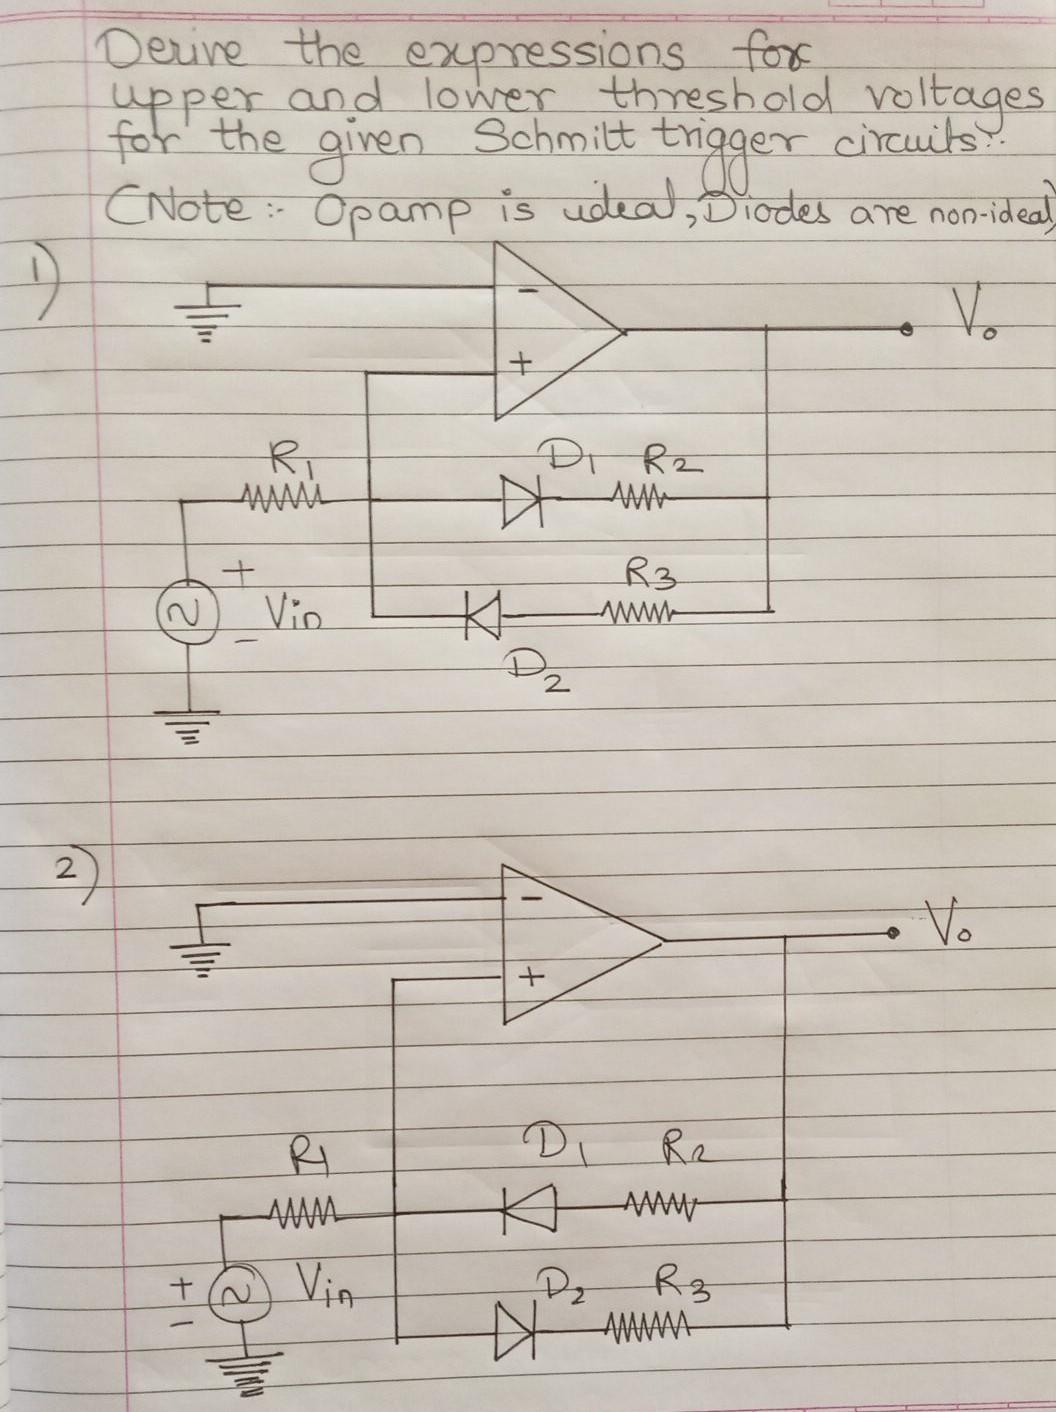 Derive the expressions for
upper and lower threshold voltages
for the given Schmitt trigger circuits?
(Note :- Opamp is ideal, Diodes are non-ideal)
1)
-
V₀
+
R₁
D₁ R₂
+
Vin
-
R₃
D₂
2)
-
V₀
+
R₁
D₁ R₂
+
-
Vin
D₂ R₃